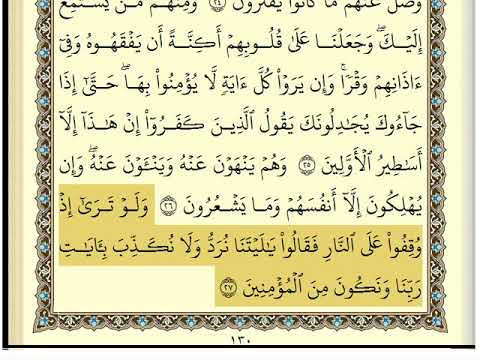 وَضَلَّ عَنْهُم مَّا كَانُوا۟ يَفْتَرُونَ ٢٤ وَمِنْهُم مَّن يَسْتَمِعُ
إِلَيْكَ ۖ وَجَعَلْنَا عَلَىٰ قُلُوبِهِمْ أَكِنَّةً أَن يَفْقَهُوهُ وَفِىٓ
ءَاذَانِهِمْ وَقْرًا ۚ وَإِن يَرَوْا۟ كُلَّ ءَايَةٍ لَّا يُؤْمِنُوا۟ بِهَا ۖ حَتَّىٰٓ إِذَا
جَآءُوكَ يُجَـٰدِلُونَكَ يَقُولُ ٱلَّذِينَ كَفَرُوٓا۟ إِنْ هَـٰذَآ إِلَّآ
أَسَـٰطِيرُ ٱلْأَوَّلِينَ ٢٥ وَهُمْ يَنْهَوْنَ عَنْهُ وَيَنْـَٔوْنَ عَنْهُ ۖ وَإِن
يُهْلِكُونَ إِلَّآ أَنفُسَهُمْ وَمَا يَشْعُرُونَ ٢٦ وَلَوْ تَرَىٰٓ إِذْ
وُقِفُوا۟ عَلَى ٱلنَّارِ فَقَالُوا۟ يَـٰلَيْتَنَا نُرَدُّ وَلَا نُكَذِّبَ بِـَٔايَـٰتِ
رَبِّنَا وَنَكُونَ مِنَ ٱلْمُؤْمِنِينَ ٢٧
١٣٠